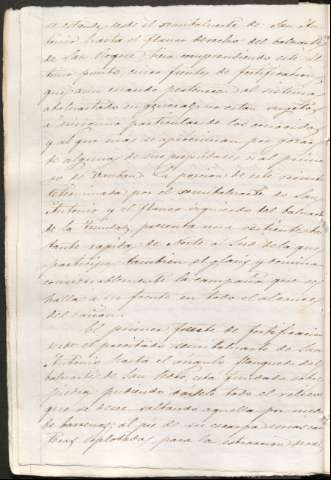 el semibaluarte de San An-
tonio hasta el flanco derecho del baluarte
de San Roque, bien comprendiendo este úl-
timo punto, cinco frentes de fortificacion
que aun cuando pertenecen al sistema
abaluartado en general, no estan sujetos
á ninguno particular de los conocidos
y al que mas se aproximan por gozar
de algunas de sus propiedades, es al prime-
ro de Vauban. La porcion de este recinto
determinada por el semibaluarte de San
Antonio y el flanco izquierdo del baluarte
de la presenta una vertiente bas-
tante rapida de Norte á Sud de la que
participa tambien el glasis y domina
considerablemente la campaña que se
halla á su frente en todo el alcance
del cañon.
El primer frente de fortificacion
desde el precitado semibaluarte de San
Antonio hasta el ángulo flanqueado del
baluarte de San Pedro, está fundado sobre
piedra pudiendo todo el relieve
que se desee saltando aquella por medio
de barrenos; al pie de su escarpa
para la estraccion de